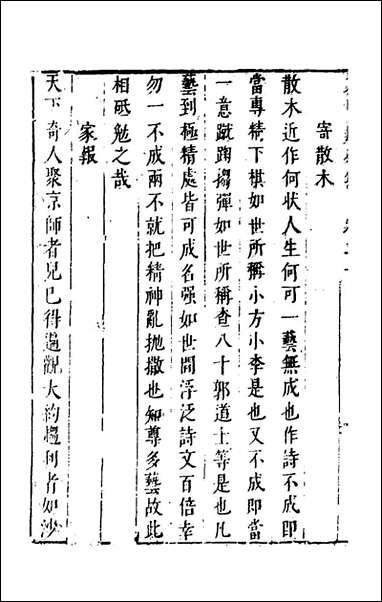 寄散木
散木近作何狀人生何可一藝無成也作詩不成即
當專精下棋如世所稱小方小李是也又不成即當
一意蹴踘搊彈如世所稱查八十郭道士等是也凡
藝到極精處皆可成名强如世間浮泛詩文百倍幸
勿一不成兩不就把精神亂抛撒也知尊多藝故此
相砥勉之哉
家報
天下奇人聚京師者兄已得遍觀大約趨利者如沙